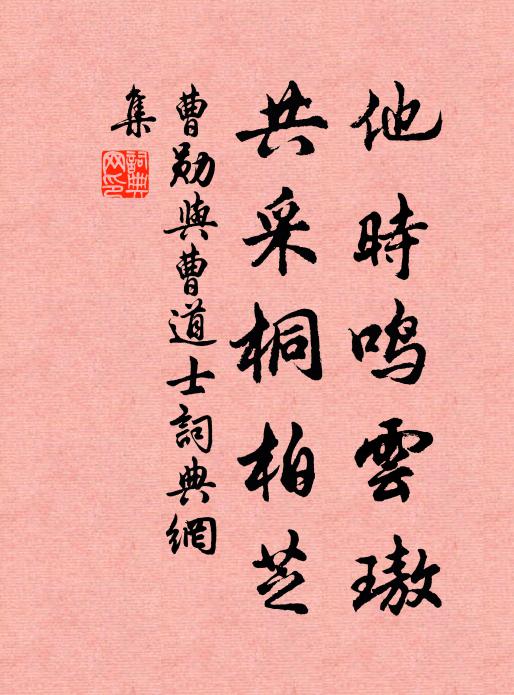 他時鳴雲璈
共采桐柏芝
曹勛與曹道士詞典網
集
詞典網印